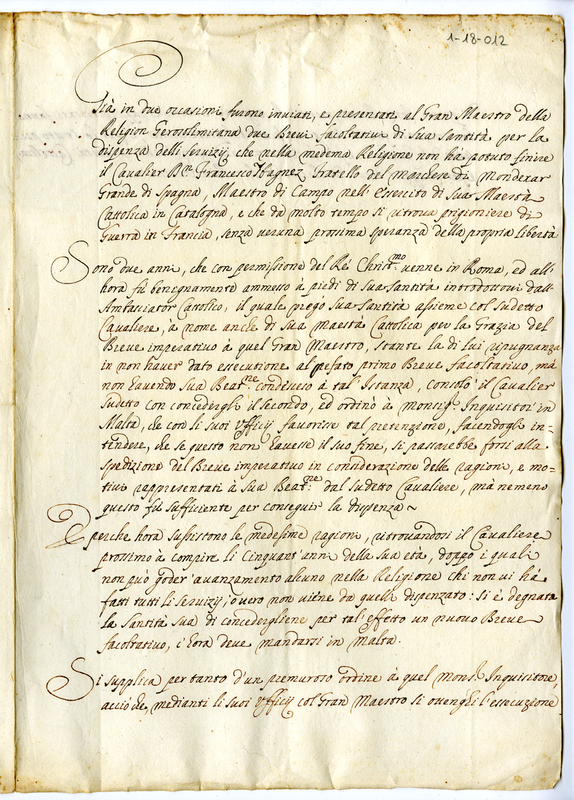 1-18-012
Già in due occasioni furono inviati, e presentati al Gran Maestro della
Religion Gerosolimitana due Brevi facoltativi di Sua Santità per la
dispenza delli Servizij, che nella medema Religione non hà potuto finire
il Cavalier Francesco Ybagnez fratello del Marchese di Mondexar
Grande di Spagna, Maestro di Campo nell'essercito di Sua Maestà
Cattolica in Catalogna, e che da molto tempo si ritrova prigioniere di
Guerra in Francia, senza veruna prossima speranza della propria libertà
Sono due anni, che con permissione del Rè Christ.mo venne in Roma, ed all'
hora fù benignamente ammesso à piedi di Sua Santità introdottovi dall'
Ambasciator Cattolico, il quale pregò Sua Santità assieme col sudetto
Cavaliere, à nome anche di Sua Maestà Cattolica per la Grazia del
Breve imperativo à quel Gran Maestro, stante la di lui ripugnanza
in non haver dato essecutione al pefato primo Breve facoltativo, mà
non havendo Sua Beat.ne condesceso à tal' Istanza, consolò il Cavalier
sudetto con concedergli il secondo, ed ordinò à Monsig.r Inquisitor' in
Malta, che con li suoi Vfficij favorisse tal pretenzione, facendogli in-
tendere, che se questo non havesse il suo fine, si passarebbe forsi alla
spedizione del Breve imperativo in considerazione delle ragioni, e mo-
tivi rappresentati à Sua Beat.ne dal sudetto Cavaliere, mà nemeno
questo fù sufficiente per conseguir la dispenza ~
E perche hora sussistono le medesime ragioni, ritrovandosi il Cavaliere
prossimo à compire li Cinquant'anni della sua età, doppo i quali
non può goder' avanzamento alcuno nella Religione chi non vi hà
fatti tutti li servizij, o vero non viene da quelli dispenzato: si è degnata
la Santità Sua di concederglieне per tal' effetto un nuovo Breve
facoltativo, c'hora deve mandarsi in Malta.
Si supplica per tanto d'un premuroso ordine à quel Mons.r Inquisitore,
acciòche, medianti li suoi Vfficij col Gran Maestro si ottenghi l'essecuzione